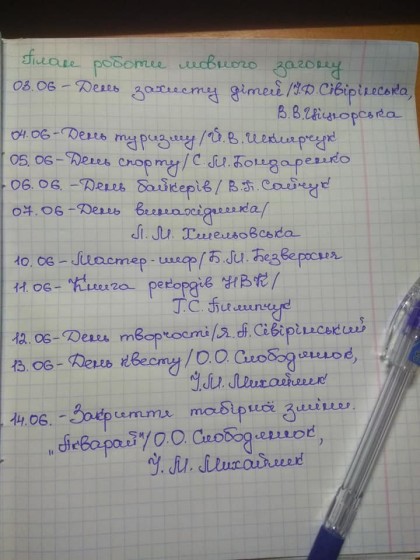 План роботи мовного загону
03.06 - День захисту дітей/І.Д.Сівірінська,
В.В.Піцнорська
04.06 - День туризму/Й.В.
05.06 - День спорту/С.М.Бондаренко
06.06. - День байкерів/В.П.Сайчук
07.06 - День винахідника/
Л.М.Хмельовська
10.06 - Мастер-шеф/Б.М.Безверхня
11.06 - Книга рекордів НВК/
Г.С.Пилипчук
12.06 - День творчості/Я.А.Сівірінський
13.06 - День квесту/О.О.Слободянюк,
І.М.Михайлик
14.06. - Закриття табірної зміни.
„Акварай"/О.О.Слободянюк,
І.М.Михайлик